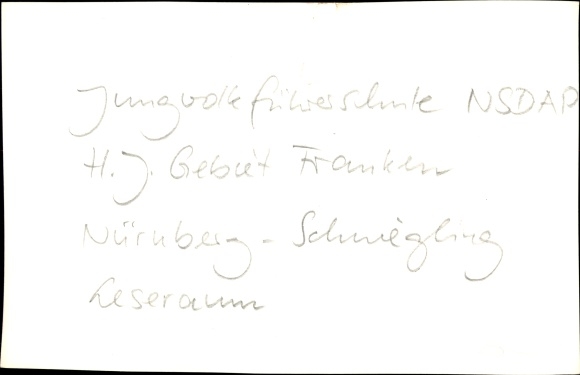 Jungvolkführerschule NSDAP
H.J. Gebiet Franken
Nürnberg - Schniegling
Leseraum